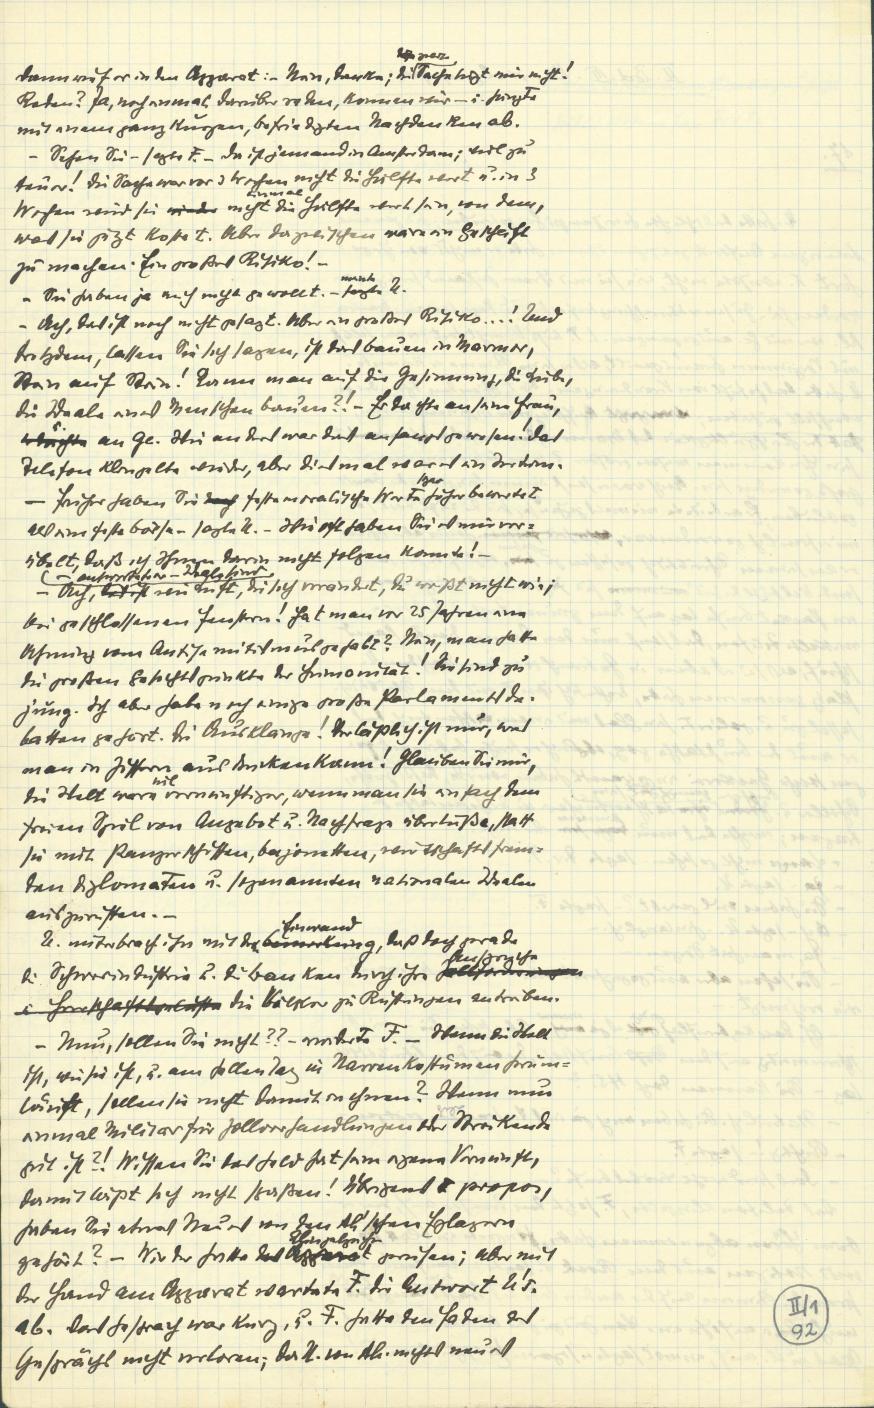 dann rief er in den Apparat: – Nein, danke; die Sache liegt mir nicht!
Reden? Ja, noch einmal darüber reden, können wir – u. hängte
mit einem ganz kurzen, befriedigten Nachdenken ab.
– Sehen Sie – sagte F. – da ist jemand in Amsterdam; viel zu
teuer! Die Sache war vor 3 Wochen nicht die Hälfte wert u. in 3
Wochen wird sie wieder nicht einmal die Hälfte wert sein, von dem,
was sie jetzt kostet. Aber dazwischen wäre ein Geschäft
zu machen. Ein großes Risiko! –
– Sie haben ja auch nicht gewollt. – meinte sagte U.
– Ach, das ist noch nicht gesagt. Aber ein großes Risiko...! Und
trotzdem, lassen Sie sich sagen, ist das bauen in Marmor,
Stein auf Stein! Kann man auf die Gesinnung, die Liebe,
die Ideale eines Menschen bauen?! – Er dachte an seine Frau,
u. an Ge. Wie anders war das anfangs gewesen! Das
Telefon klingelte wieder, aber diesmal war es ein Irrtum.
– Früher haben Sie feste moralische Werte höher bewertet
als eine feste Börse – sagte U. – Wie oft haben Sie es mir ver=
übelt, daß ich Ihnen darin nicht folgen konnte! –
– antwortete er –
– Ach, die sich verändert, du weißt nicht wie;
bei geschlossenen Fenstern! Hat man vor 25 Jahren eine
Ahnung vom Antisemitismus gehabt? Nein, man hatte
die großen Gesichtspunkte der Humanität! Sie sind zu
jung. Ich aber habe noch einige große Parlamentsde-
batten gehört. Die Ausklänge! Verläßlich ist nur, was
man in Ziffern ausdrücken kann! Glauben Sie mir,
die Welt wäre viel vernünftiger, wenn man sie einfach dem
freien Spiel von Angebot u. Nachfrage überließe, statt
sie mit Panzerschiffen, bajonetten, wirtschaftsfrem=
den diplomaten u. sogenannten nationalen Idealen
auszurüsten. –
U. unterbrach ihn mit dem Einwand bemerkung, daß doch gerade
die Schwerindustrie u. die banken durch ihre Ansprüche
die Völker zu Rüstungen antreiben.
– Nun, sollen Sie nicht?? – erwiderte F. – Wenn die Welt
ist, wie sie ist, u. am hellen Tag in Narrenkostümen herum=
läuft, sollen sie nicht damit rechnen? Wenn nun
einmal Militär für Zollverhandlungen oder Streikende
gut ist?! Wissen Sie das Geld hat seine eigene Vernunft,
damit läßt sich nicht spaßen! Übrigens à propos,
haben Sie etwas Neues von den Ah'schen Erzlagern
gehört? – Wieder hatte das Apparat gerufen; aber mit
der Hand am Apparat wartete F. die Antwort U's.
ab. Das Gespräch war kurz, u. F. hatte den Faden des
Gesprächs nicht verloren; da U. von Ah. nichts neues
II/1
92